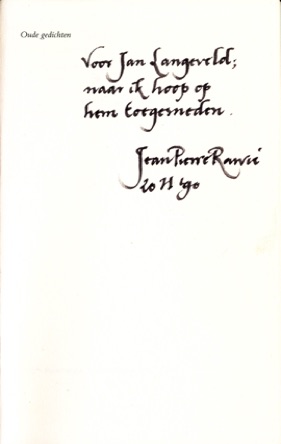 Oude gedichten
Voor Jan Langeveld;
naar ik hoop op
hem toegesneden.
Jean Pierre Rawie
20 11 '90